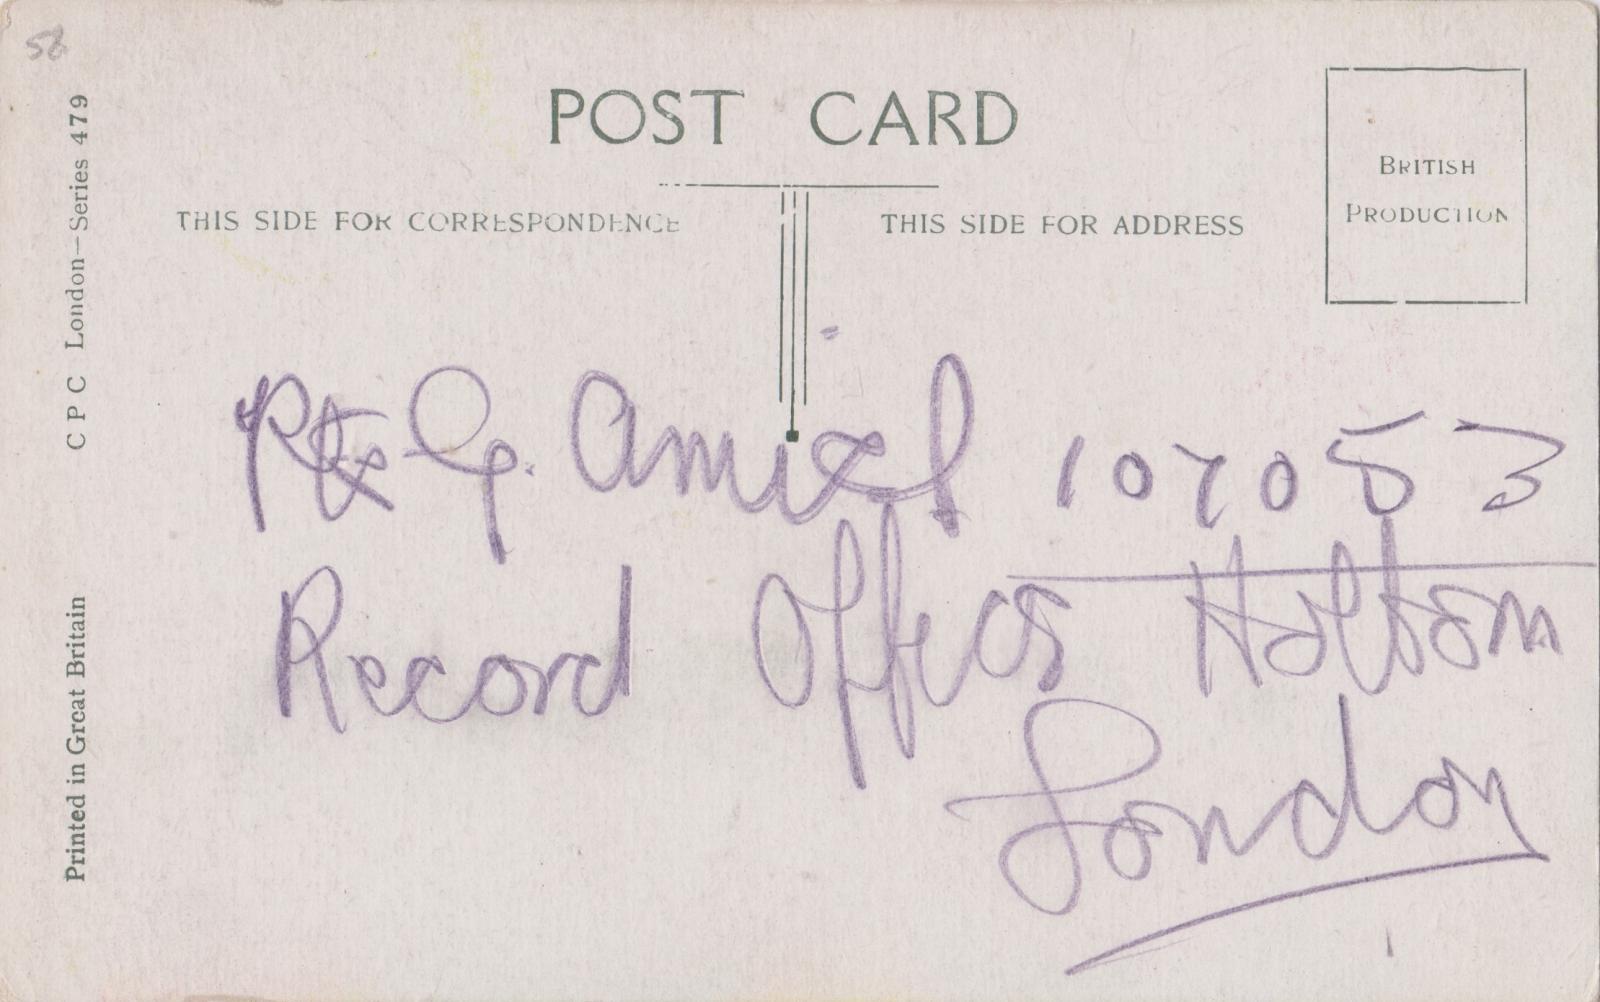 58
POST CARD
THIS SIDE FOR CORRESPONDENCE
THIS SIDE FOR ADDRESS
BRITISH
PRODUCTION
C P C London—Series 479
Printed in Great Britain
G. 107053
Record Office
London